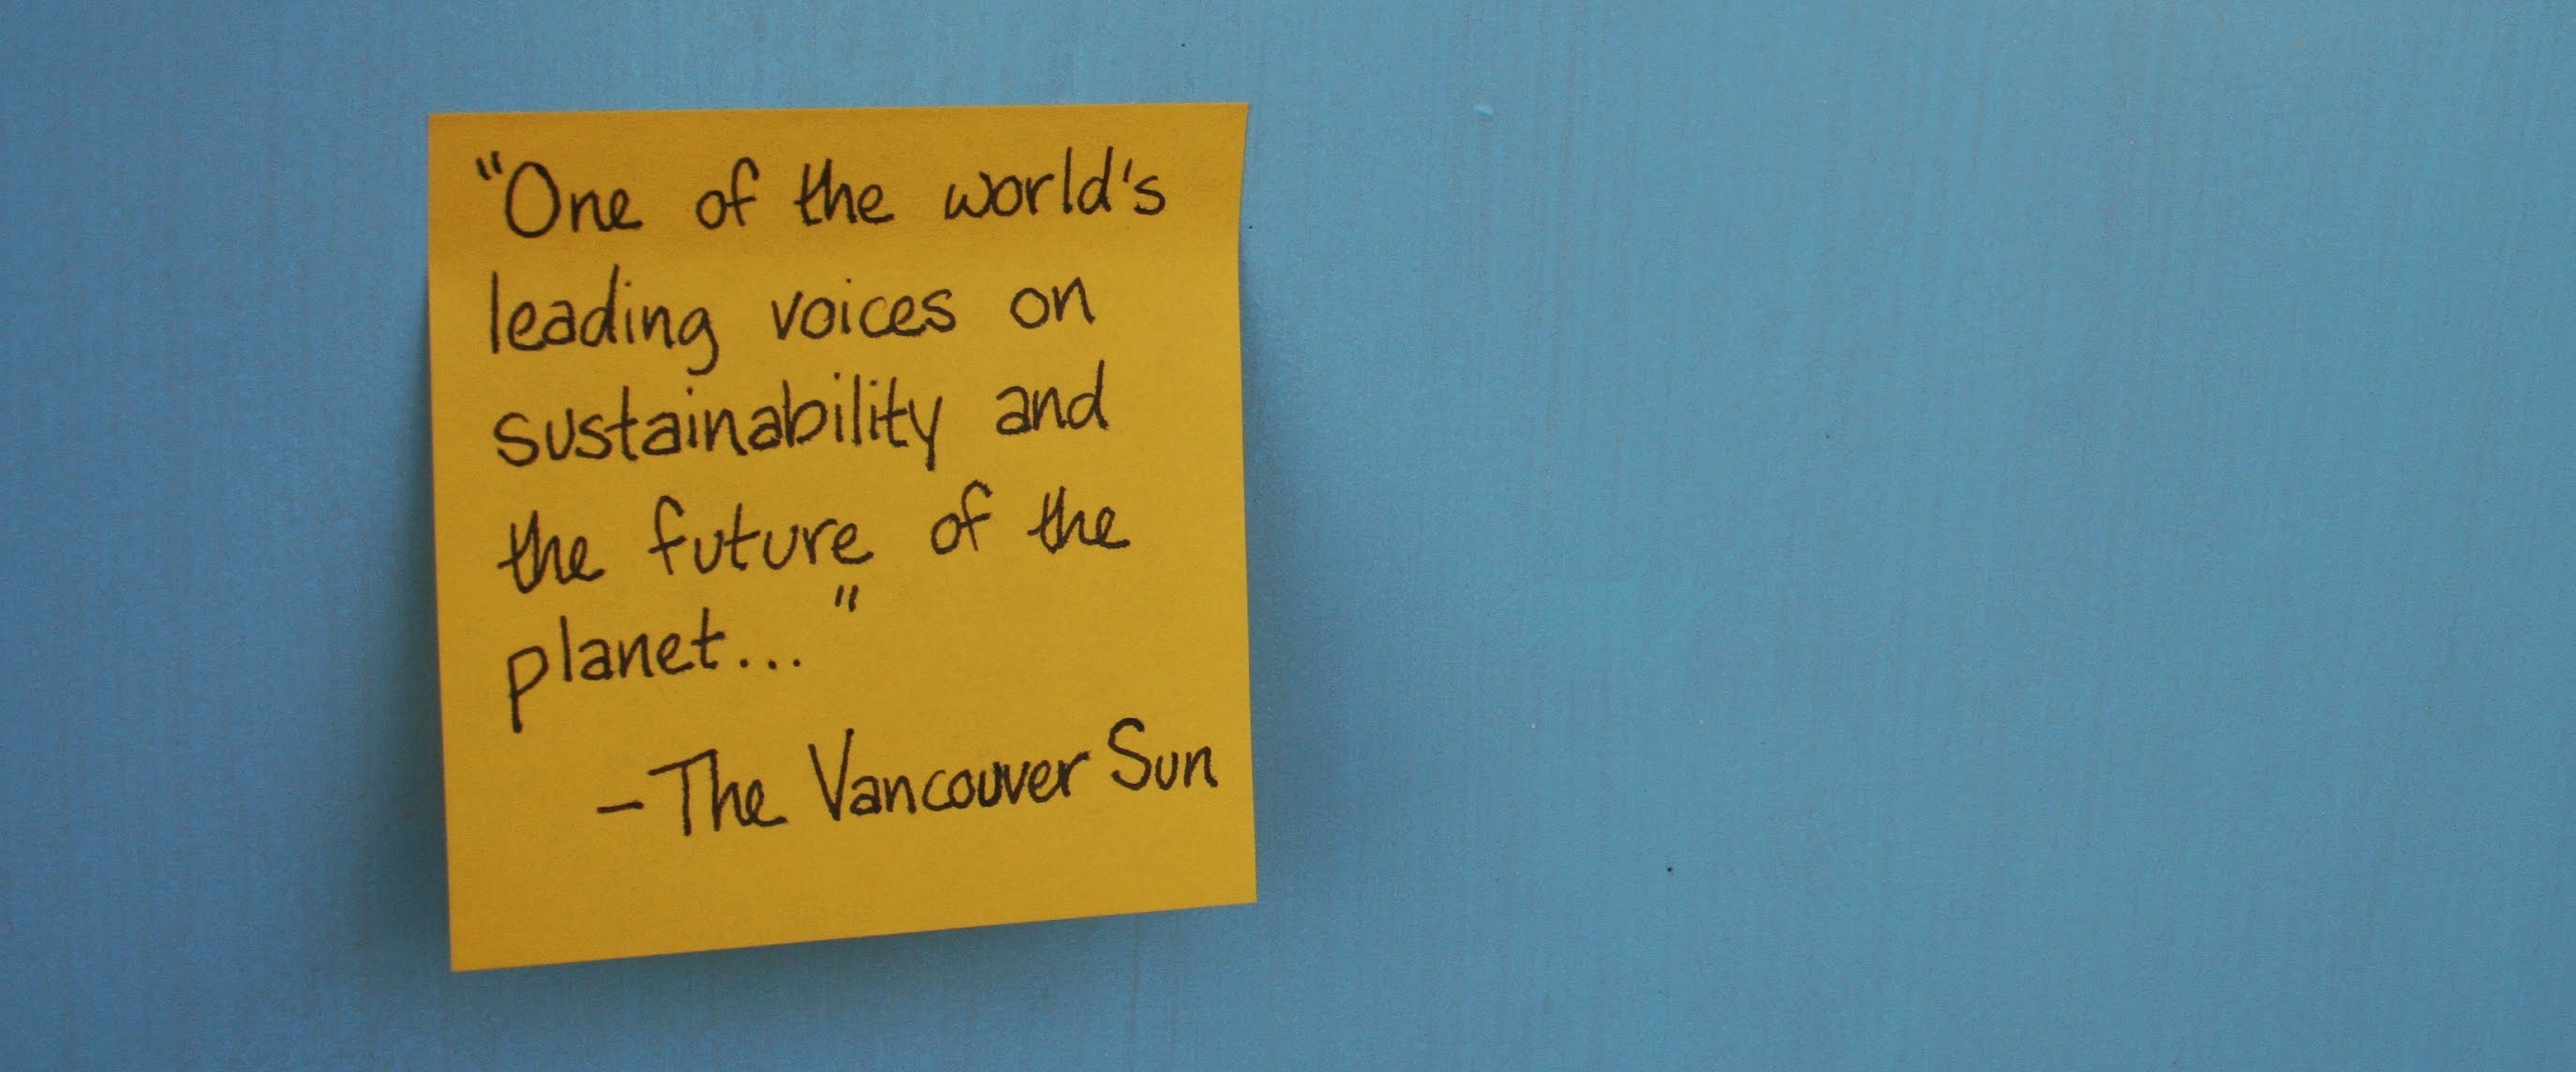 "One of the world's
leading voices on
sustainability and
the future of the
planet..."
- The Vancouver Sun